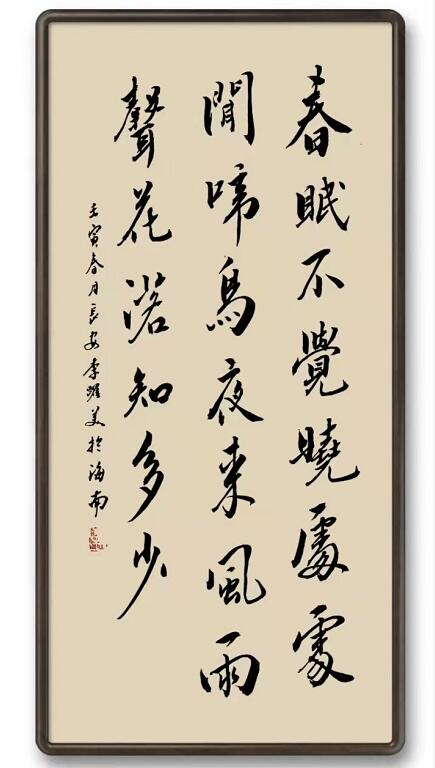 春眠不覺曉處處
聞啼鳥夜来風雨
聲花落知多少
壬寅春月長安李耀美於海南